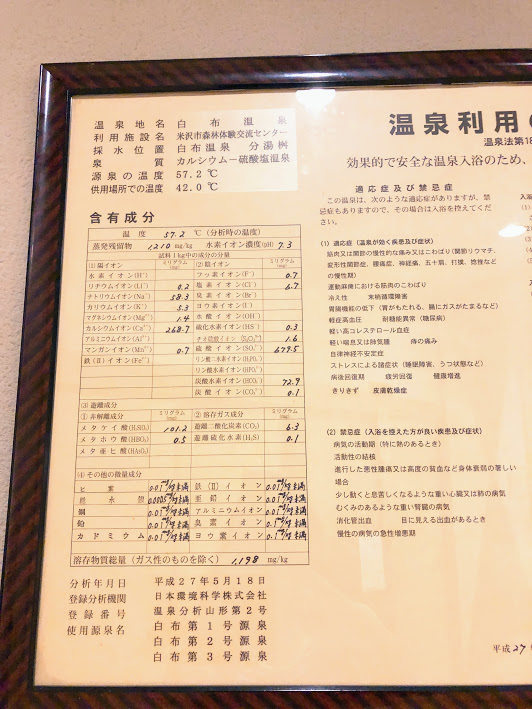 温泉地名 白布温泉
利用施設名 米沢市森林体験交流センター
採水位置 白布温泉 分湯桝
泉質 カルシウム－硫酸塩温泉
源泉の温度 57.2 ℃
供用場所での温度 42.0 ℃
含有成分
温度 57.2 ℃（分析時の温度）
蒸発残留物 1,210 mg/kg 水素イオン濃度(pH) 7.3
試料1kg中の成分の分量
(1)陽イオン ミリグラム(mg) (2)陰イオン ミリグラム(mg)
水素イオン(H⁺) フッ素イオン(F⁻) 0.7
リチウムイオン(Li⁺) 0.2 塩素イオン(Cl⁻) 6.7
ナトリウムイオン(Na⁺) 58.3 臭素イオン(Br⁻)
カリウムイオン(K⁺) 5.3 ヨウ素イオン(I⁻)
マグネシウムイオン(Mg²⁺) 1.4 水酸イオン(OH⁻)
カルシウムイオン(Ca²⁺) 268.7 硫化水素イオン(HS⁻) 0.3
アルミニウムイオン(Al³⁺) チオ硫酸イオン(S₂O₃²⁻) 1.6
マンガンイオン(Mn²⁺) 0.7 硫酸イオン(SO₄²⁻) 679.5
鉄(Ⅱ)イオン(Fe²⁺) リン酸二水素イオン(H₂PO₄⁻)
リン酸水素イオン(HPO₄²⁻)
炭酸水素イオン(HCO₃⁻) 72.9
炭酸イオン(CO₃²⁻) 0.1
(3)遊離成分
①非解離成分 ミリグラム(mg) ②溶存ガス成分 ミリグラム(mg)
メタケイ酸(H₂SiO₃) 101.2 遊離二酸化炭素(CO₂) 6.3
メタホウ酸(HBO₂) 0.5 遊離硫化水素(H₂S) 0.1
メタ亜ヒ酸(HAsO₂)
(4)その他の微量成分
ヒ素 0.01mg/kg未満 鉄(Ⅱ)イオン 0.01mg/kg未満
総水銀 0.0005mg/kg未満 亜鉛イオン 0.01mg/kg未満
銅 0.01mg/kg未満 アルミニウムイオン 0.01mg/kg未満
鉛 0.01mg/kg未満 臭素イオン 0.1mg/kg未満
カドミウム 0.01mg/kg未満 ヨウ素イオン 0.1mg/kg未満
溶存物質総量（ガス性のものを除く） 1,198 mg/kg
分析年月日 平成27年5月18日
登録分析機関 日本環境科学株式会社
登録番号 温泉分析山形第2号
使用源泉名 白布第1号源泉
白布第2号源泉
白布第3号源泉
温泉利用の
温泉法第18
効果的で安全な温泉入浴のため、
適応症及び禁忌症
この温泉は、次のような適応症がありますが、禁
忌症もありますので、その場合は入浴を控えてくだ
さい。
(1) 適応症（温泉が効く疾患及び症状）
筋肉又は関節の慢性的な痛み又はこわばり（関節リウマチ、
変形性関節症、腰痛症、神経痛、五十肩、打撲、捻挫など
の慢性期）
運動麻痺における筋肉のこわばり
冷え性 末梢循環障害
胃腸機能の低下（胃がもたれる、腸にガスがたまるなど）
軽症高血圧 耐糖能異常（糖尿病）
軽い高コレステロール血症
軽い喘息又は肺気腫 痔の痛み
自律神経不安定症
ストレスによる諸症状（睡眠障害、うつ状態など）
病後回復期 疲労回復 健康増進
きりきず 皮膚乾燥症
(2) 禁忌症（入浴を控えた方が良い疾患及び症状）
病気の活動期（特に熱のあるとき）
活動性の結核
進行した悪性腫瘍又は高度の貧血など身体衰弱の著しい
場合
少し動くと息苦しくなるような重い心臓又は肺の病気
むくみのあるような重い腎臓の病気
消化管出血 目に見える出血があるとき
慢性の病気の急性増悪期
平成27